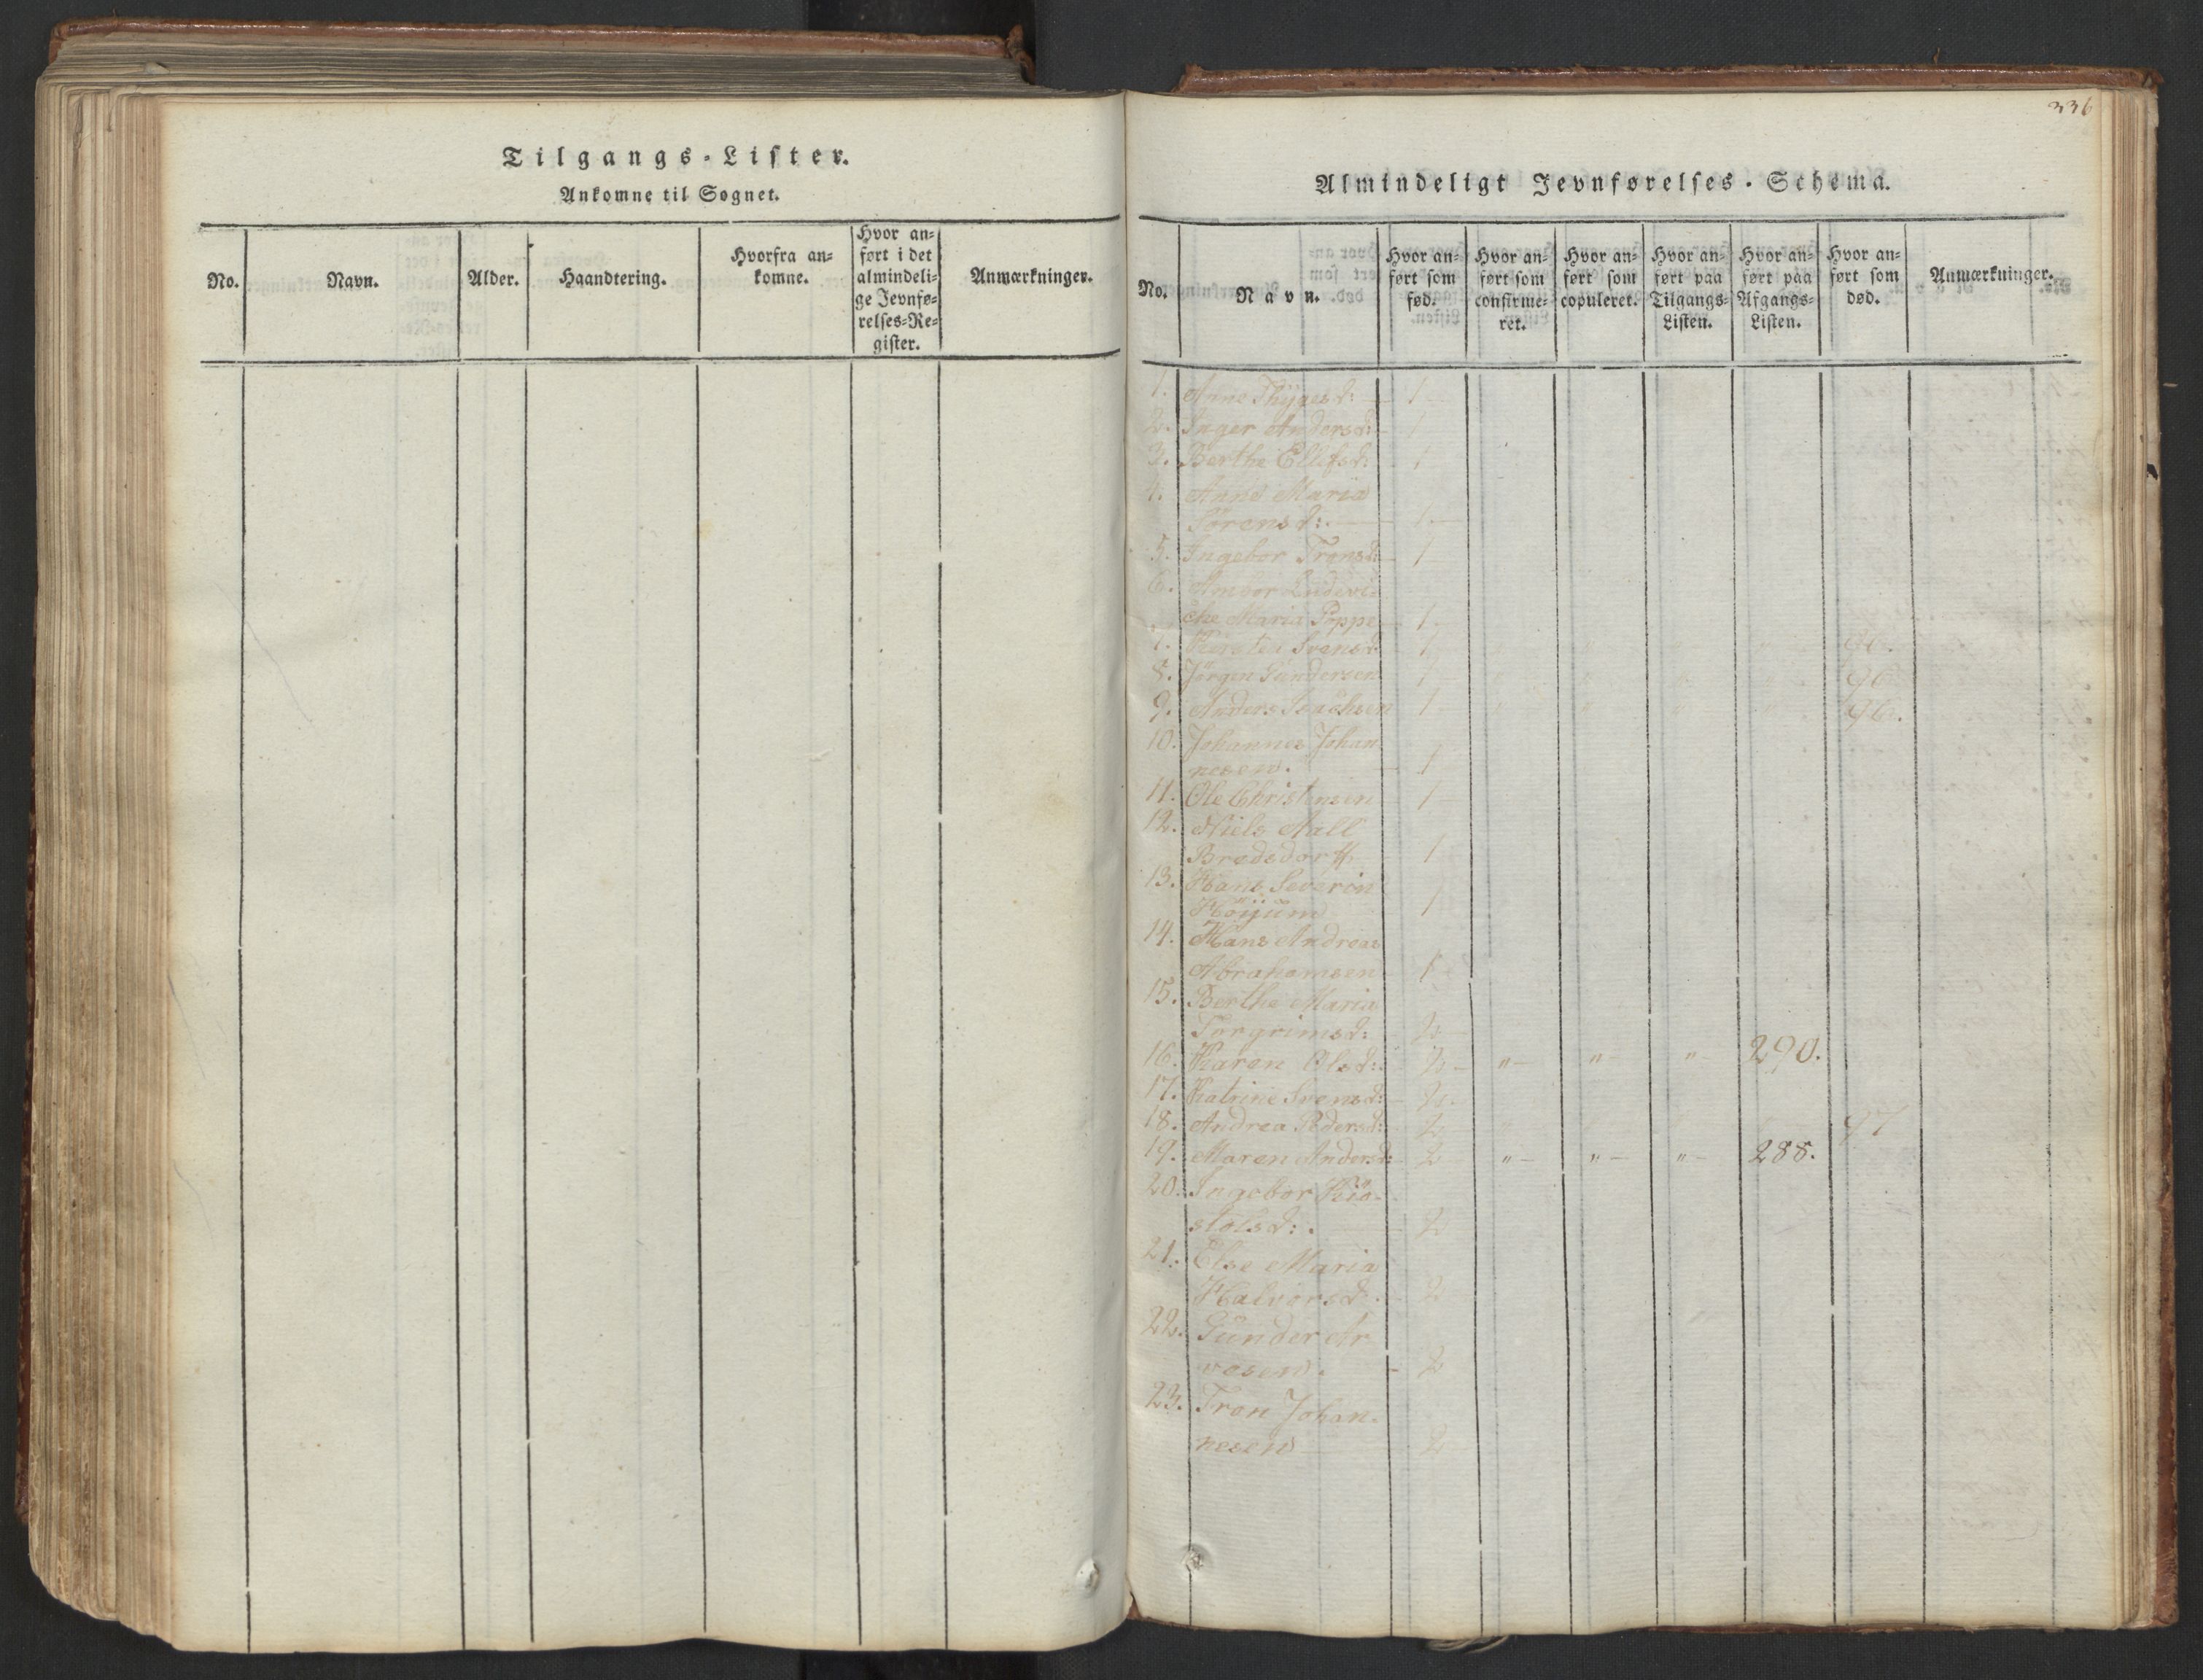 Tilgangs-Lister.
Ankomne til Sognet.
No.
Navn.
Alder.
Haandtering.
Hvorfra an-
komne.
Hvor an-
ført i det
almindeli-
ge Jevnfø-
relses-Re-
gister.
Anmærkninger.
336
Almindeligt Jevnførelses-Schema.
No.
Navn.
Hvor an-
ført som
fød.
Hvor an-
ført som
confirme-
ret.
Hvor an-
ført som
copuleret.
Hvor an-
ført paa
Tilgangs-
Listen.
Hvor an-
ført paa
Afgangs-
Listen.
Hvor an-
ført som
død.
Anmærkninger.
1. Anne Thÿgesd: 1
2. Inger Andersd: 1
3. Berthe Ellefsd: 1
4. Anne Maria
Sørensd: 1
5. Ingebor Tronsd: 1
6. Ludevi-
che Maria Poppe 1
7. Kirsten Svensd: 1 " " " " 96.
8. Jørgen Gundersen 1 " " " " 96
9. Anders 1 " " " " 96.
10. Johannes Johan-
nesen. 1
11. Ole Christensen 1
12. Niels Aall
Bredsdorff 1
13. Hans Severin
Höÿum 1
14. Hans Andreas
Abrahamsen 1
15. Berthe Maria
Torgrimsd: 2
16. Karen Olsd: 2 " " " 290.
17. Katrine Svensd: 2
18. Andrea Pedersd: 2 97
19. Maren Andersd: 2 " " " 288.
20. Ingebor Kiø-
stolsd: 2
21. Else Maria
Halvorsd: 2
22. Gunder Ar-
vesen. 2
23. Tron Johan-
nesen 2